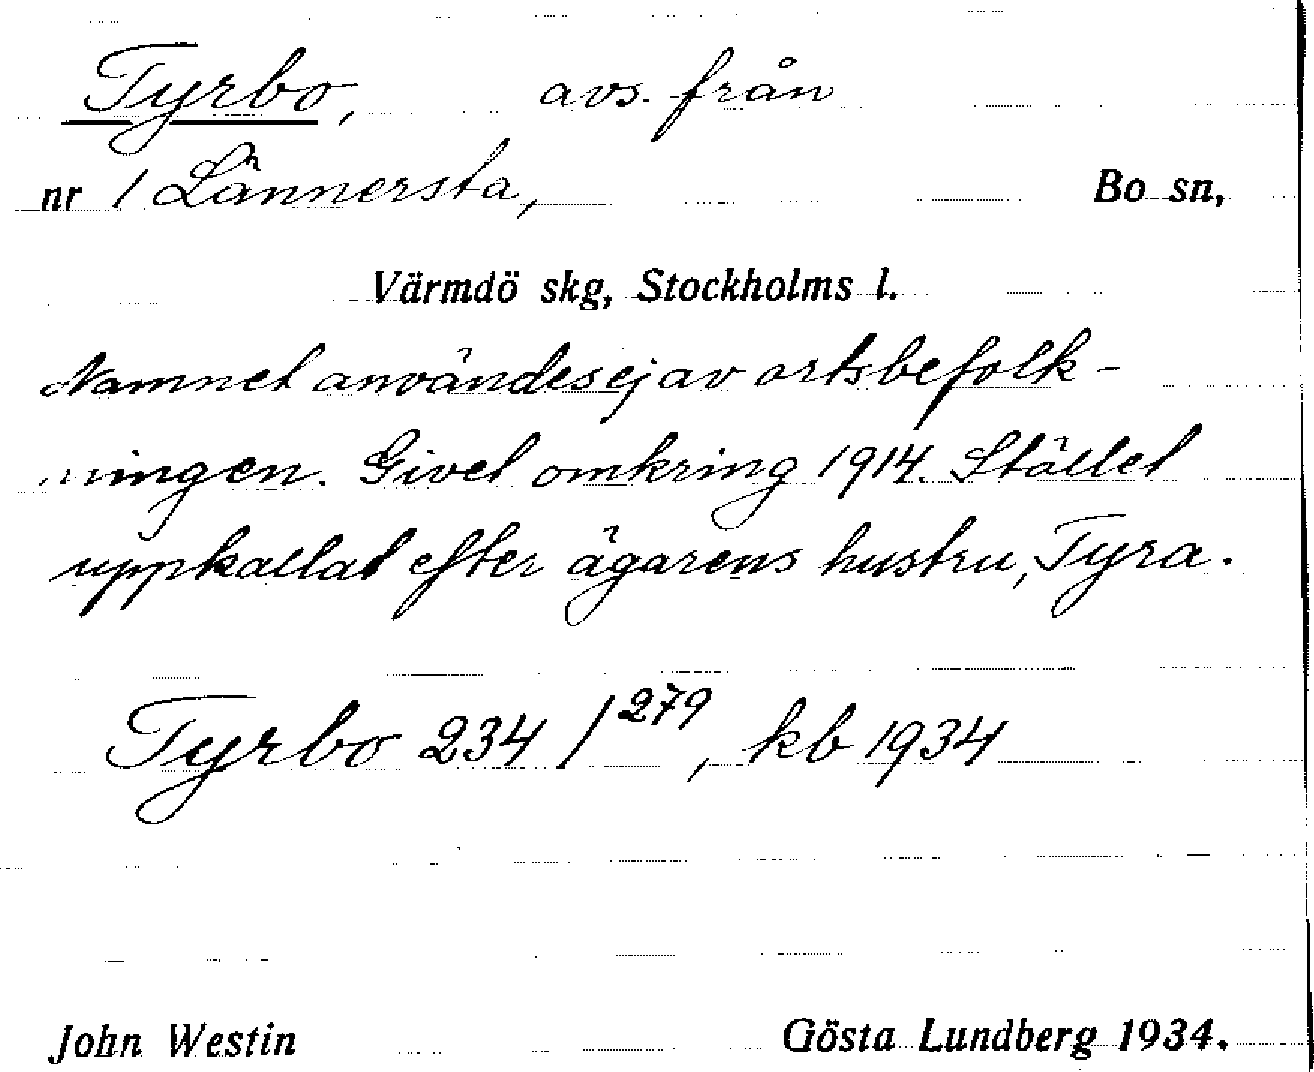 Tyrbo, avs. från
nr 1 Lännersta, Bo sn,
Värmdö skg, Stockholms l.
Namnet användes ej av ortsbefolk-
ningen. Givet omkring 1914. Stället
uppkallat efter ägarens hustru, Tyra.
Tyrbo 234 /279, kb 1934
John Westin Gösta Lundberg 1934.